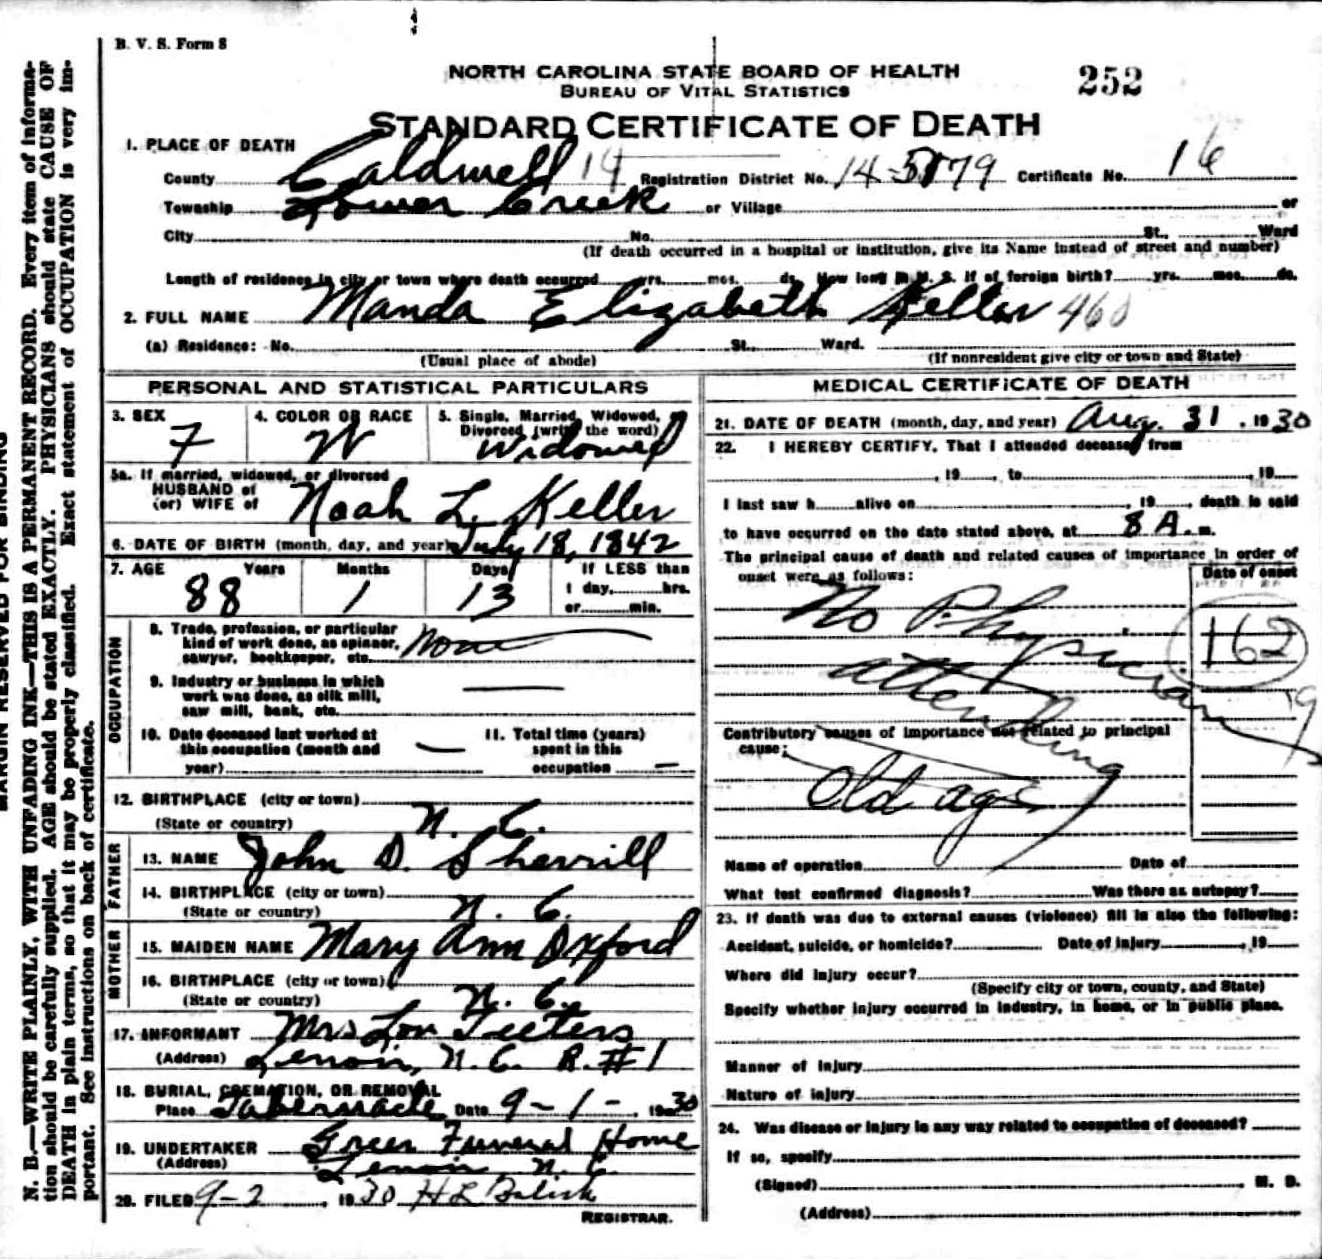 B. V. S. Form 8
NORTH CAROLINA STATE BOARD OF HEALTH
BUREAU OF VITAL STATISTICS
252
STANDARD CERTIFICATE OF DEATH
1. PLACE OF DEATH
County Caldwell 14 Registration District No. 14-5179 Certificate No. 16
Township Lower Creek or Village or
City No. St., Ward
(If death occurred in a hospital or institution, give its Name instead of street and number)
Length of residence in city or town where death occurred yrs. mos. ds. How long in U. S. if of foreign birth? yrs. mos. ds.
2. FULL NAME Manda Elizabeth Keller 460
(a) Residence: No. St., Ward.
(Usual place of abode) (If nonresident give city or town and State)
PERSONAL AND STATISTICAL PARTICULARS
3. SEX 4. COLOR OR RACE 5. Single, Married, Widowed, or
Divorced (write the word)
F W Widowed
5a. If married, widowed, or divorced
HUSBAND of
(or) WIFE of Noah L. Keller
6. DATE OF BIRTH (month, day, and year) July 18, 1842
7. AGE Years Months Days If LESS than
1 day, hrs.
or min.
88 1 13
OCCUPATION
8. Trade, profession, or particular
kind of work done, as spinner,
sawyer, bookkeeper, etc. None
9. Industry or business in which
work was done, as silk mill,
saw mill, bank, etc.
10. Date deceased last worked at
this occupation (month and
year)
11. Total time (years)
spent in this
occupation
12. BIRTHPLACE (city or town)
(State or country) N. C.
FATHER
13. NAME John D. Sherrill
14. BIRTHPLACE (city or town)
(State or country) N. C.
MOTHER
15. MAIDEN NAME Mary Ann Oxford
16. BIRTHPLACE (city or town)
(State or country) N. C.
17. INFORMANT Mrs Lon Teeters
(Address) Lenoir, N. C. R. #1
18. BURIAL, CREMATION, OR REMOVAL
Place Tabernacle Date 9-1-, 1930
19. UNDERTAKER Greer Funeral Home
(Address) Lenoir, N. C.
20. FILED 9-2, 1930 H L
REGISTRAR.
MEDICAL CERTIFICATE OF DEATH
21. DATE OF DEATH (month, day, and year) Aug. 31, 1930
22. I HEREBY CERTIFY, That I attended deceased from
, 19 , to , 19
I last saw h alive on , 19 , death is said
to have occurred on the date stated above, at 8 A. m.
The principal cause of death and related causes of importance in order of
onset were as follows:
Date of onset
No Physician
attending
162
9
Contributory causes of importance not related to principal
cause:
Old age
Name of operation Date of
What test confirmed diagnosis? Was there an autopsy?
23. If death was due to external causes (violence) fill in also the following:
Accident, suicide, or homicide? Date of injury , 19
Where did injury occur?
(Specify city or town, county, and State)
Specify whether injury occurred in industry, in home, or in public place.
Manner of injury
Nature of injury
24. Was disease or injury in any way related to occupation of deceased?
If so, specify
(Signed) , M. D.
(Address)
MARGIN RESERVED FOR BINDING
N. B.—WRITE PLAINLY, WITH UNFADING INK—THIS IS A PERMANENT RECORD. Every item of informa-
tion should be carefully supplied. AGE should be stated EXACTLY. PHYSICIANS should state CAUSE OF
DEATH in plain terms, so that it may be properly classified. Exact statement of OCCUPATION is very im-
portant. See instructions on back of certificate.